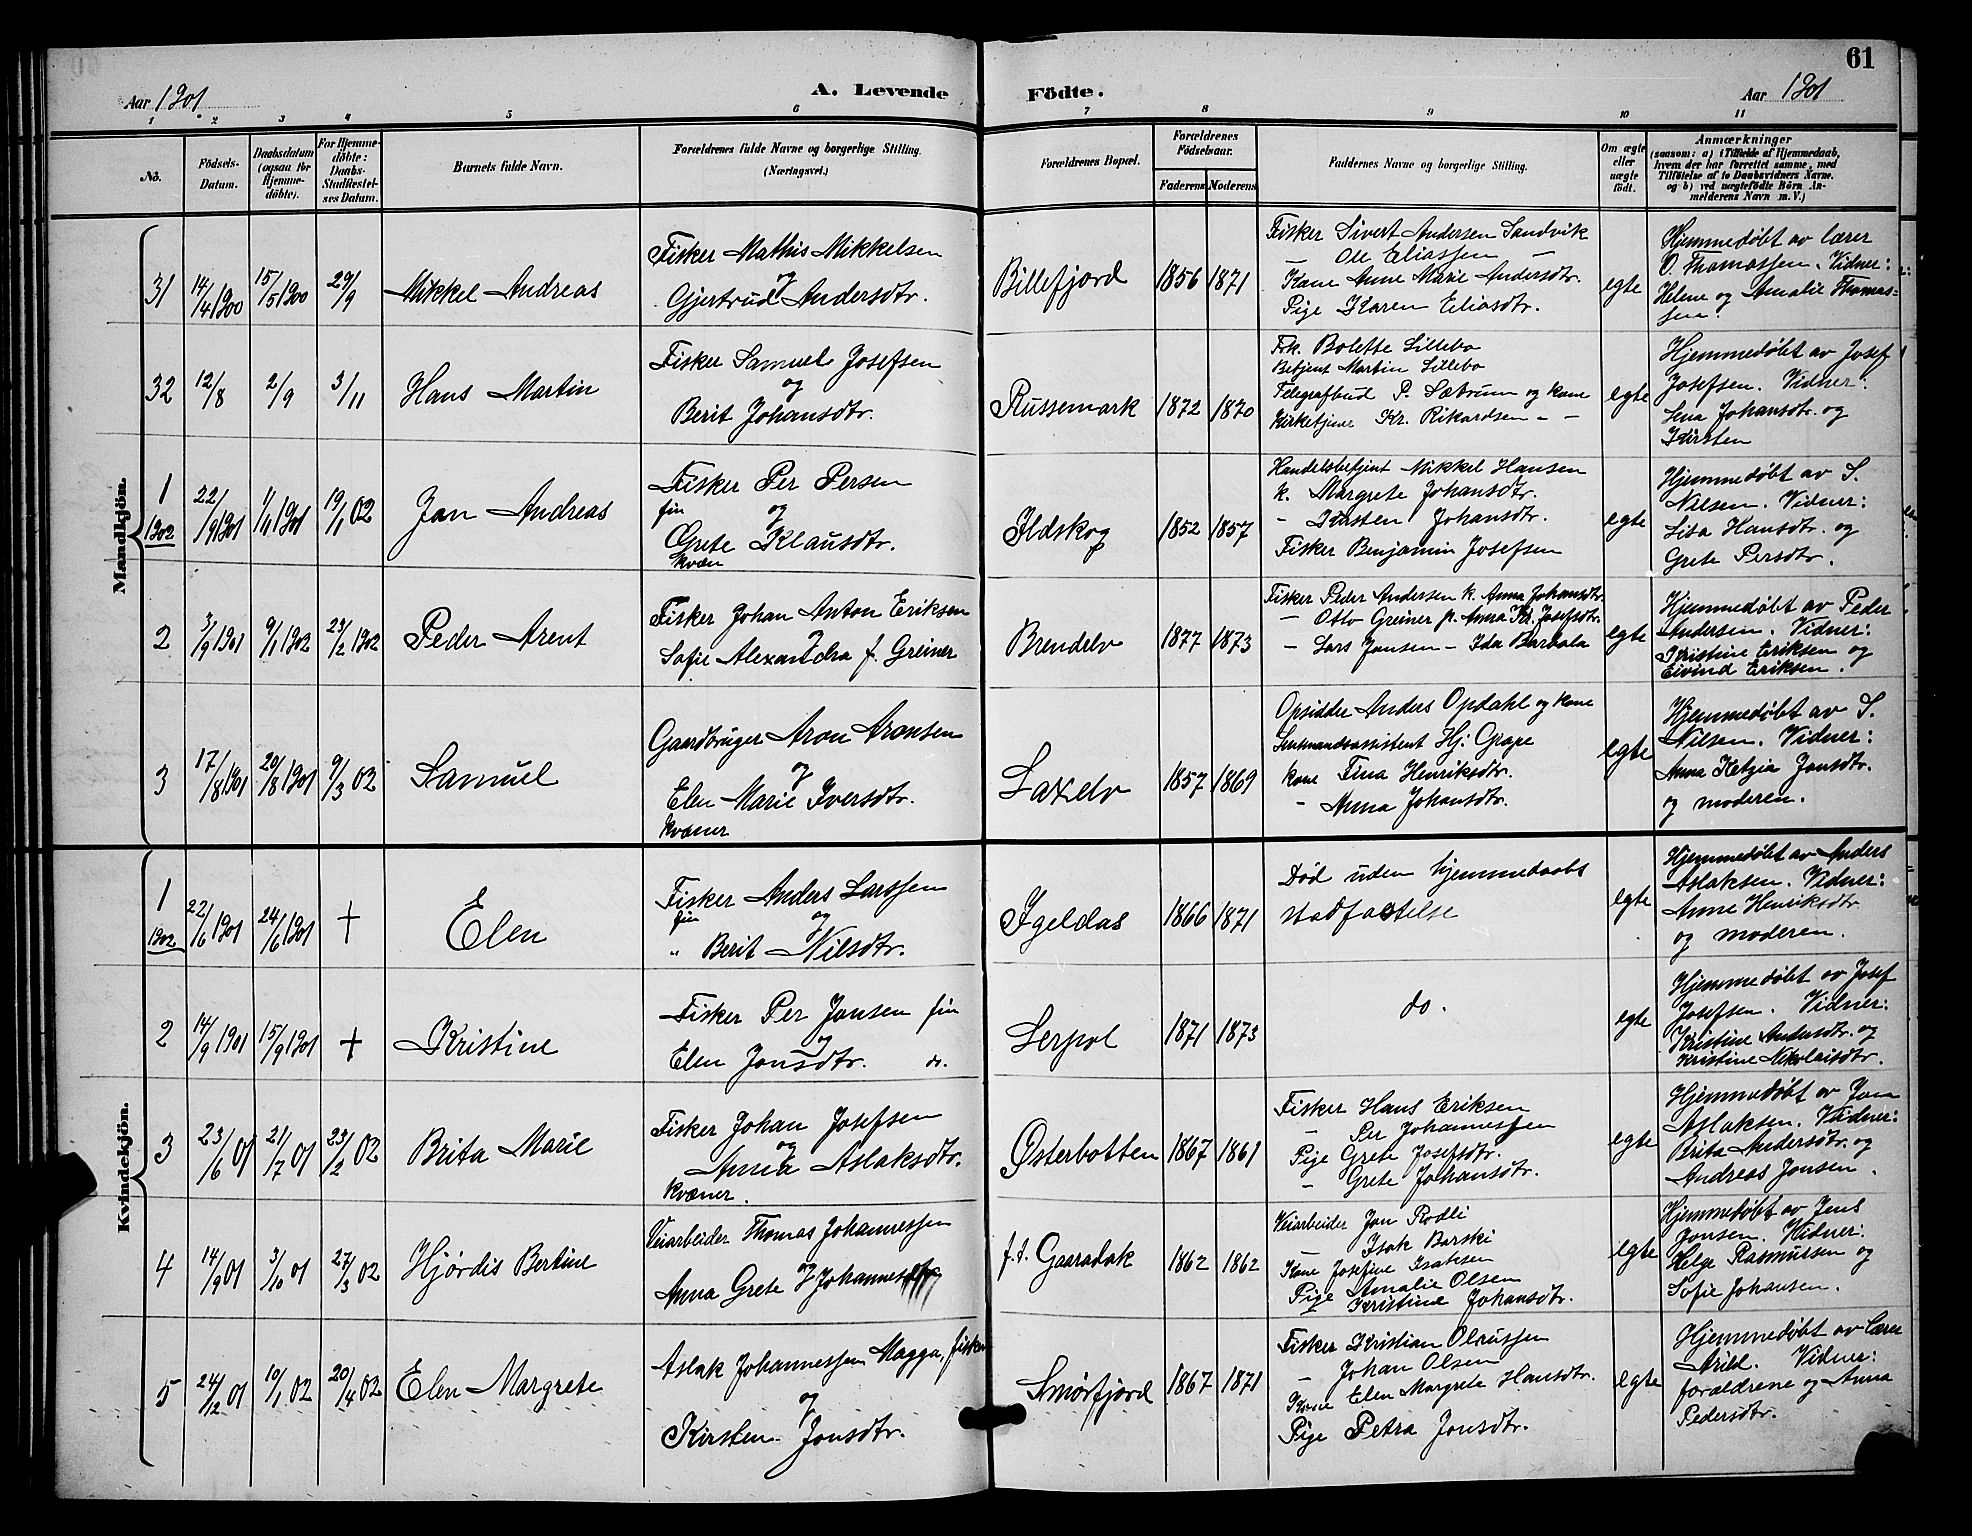 61
Aar 1901
A. Levende Födte.
Aar 1901
1 2 3 4 5 6 7 8 9 10 11
No.
Födsels-Datum.
Daabsdatum (ogsaa for Hjemmedöbte).
For Hjemmedöbte: Daabs-Stadfæstelses Datum.
Barnets fulde Navn.
Forældrenes fulde Navne og borgerlige Stilling. (Næringsvei.)
Forældrenes Bopæl.
Forældrenes Födselsaar.
Faderens
Moderens
Faddernes Navne og borgerlige Stilling.
Om ægte eller uægte födt.
Anmærkninger
(saasom: a) i Tilfælde af Hjemmedaab,
hvem der har forrettet samme, med
Tilföielse af to Daabsvidners Navne.
og b) ved uægtefödte Börn Anmelderens Navn m. V.)
Mandkjön.
31 14/4 1900 15/5 1900 29/9 Mikkel Andreas
Fisker Mathis Mikkelsen
og
Gjertrud Andersdtr.
Billefjord 1856 1871
Fisker Sivert Andersen Sandvik
— Ole Eliassen —
Kone Anne Marie Andersdtr.
Pige Karen Eliasdtr.
egte
Hjemmedøbt av lærer
O. Thomassen. Vidner:
Helene og Amalie Thomas-
sen.
32 12/8 2/9 3/11 Hans Martin
Fisker Samuel Josefsen
og
Berit Johansdtr.
Russemark 1872 1870
Frk. Bolette Lillebo
Betjent Martin Lillebo
Telegrafbud P. Sæbrum og kone
Kirketjener Kr. Rikardsen — —
egte
Hjemmedøbt av Josef
Josefsen. Vidner:
Lena Johansdtr. og
Kirsten
1 1902 22/9 1901 1/11 1901 19/1 02 Jan Andreas
Fisker Per Persen
fin og
Grete Klausdtr.
kvæn
Ildskog 1852 1857
Handelsbetjent Mikkel Hansen
k. Margrete Johansdtr.
— Kirsten Johansdtr.
Fisker Benjamin Josefsen
egte
Hjemmedøbt av S.
Nilsen. Vidner:
Lisa Hansdtr. og
Grete Persdtr.
2 3/9 1901 9/1 1902 23/2 1902 Peder Arent
Fisker Johan Anton Eriksen
og
Sofie Alexandra f. Greiner
Brendelv 1877 1873
Fisker Peder Andersen k. Anna Johansdtr.
— Otto Greiner p. Anna Kr. Josefsdtr.
— Lars Jansen — Ida Barbala
egte
Hjemmedøbt av Peder
Andersen. Vidner:
Kristine Eriksen og
Eivind Eriksen.
3 17/8 1901 20/8 1901 9/3 02 Samuel
Gaardbruger Aron Aronsen
og
Elen Marie Iversdtr.
kvæner
Laxelv 1857 1869
Opsidder Anders Opdahl og kone
Lensmandsassistent Hj. Grape
kone Tina Henriksdtr.
— Anna Johansdtr.
egte
Hjemmedøbt av S.
Nilsen. Vidner:
Anna Ketzia Jonsdtr.
og moderen.
Kvindekjön.
1 1902 22/6 1901 24/6 1901 † Elen
Fisker Anders Larssen
fin og
" Berit Nilsdtr.
Igeldas 1866 1871
Død uden hjemmedaabs
stadfæstelse
egte
Hjemmedøbt av Anders
Aslaksen. Vidner:
Anne Henriksdtr.
og moderen.
2 14/9 1901 15/9 1901 † Kristine
Fisker Per Jonsen fin
og
Elen Jonsdtr. do.
Lerpol 1871 1873
do.
egte
Hjemmedøbt av Josef
Josefsen. Vidner:
Kristine Andersdtr. og
Kristine Nikolaisdtr.
3 23/6 01 21/7 01 23/2 02 Brita Marie
Fisker Johan Josefsen
og
Anna Aslaksdtr.
kvæner.
Østerbotten 1867 1861
Fisker Hans Eriksen
— Per Johannessen
Pige Grete Josefsdtr.
— Grete Johansdtr.
egte
Hjemmedøbt av Jon
Aslaksen. Vidner:
Brita Andersdtr. og
Andreas Jonsen.
4 14/9 01 3/10 01 27/3 02 Hjørdis Bertine
Veiarbeider Thomas Johannessen
og
Anna Grete Johannes
f. t. Gaaradak 1862 1862
Veiarbeider Jon Rodli
— Isak Barski
Kone Josefine Isaksen
Pige Amalie Olsen
Kristine Johansdtr.
egte
Hjemmedøbt av Jens
Jonsen. Vidner:
Helge Rasmussen og
Sofie Johansen.
5 24/12 01 10/1 02 20/4 02 Elen Margrete
Aslak Johannessen Magga, fisker
og
Kirsten Jonsdtr.
Smørfjord 1867 1871
Fisker Kristian Olaussen
— Johan Olsen
Kone Elen Margrete Hansdtr.
Pige Petra Jonsdtr.
egte
Hjemmedøbt av lærer
Arild. Vidner:
forældrene og Anna
Pedersdtr.